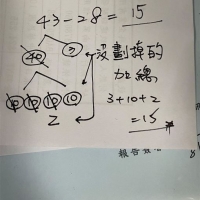 43-28=15
40 3
沒劃掉的
加總
10 10 10 10
3+10+2
=15
2
報告